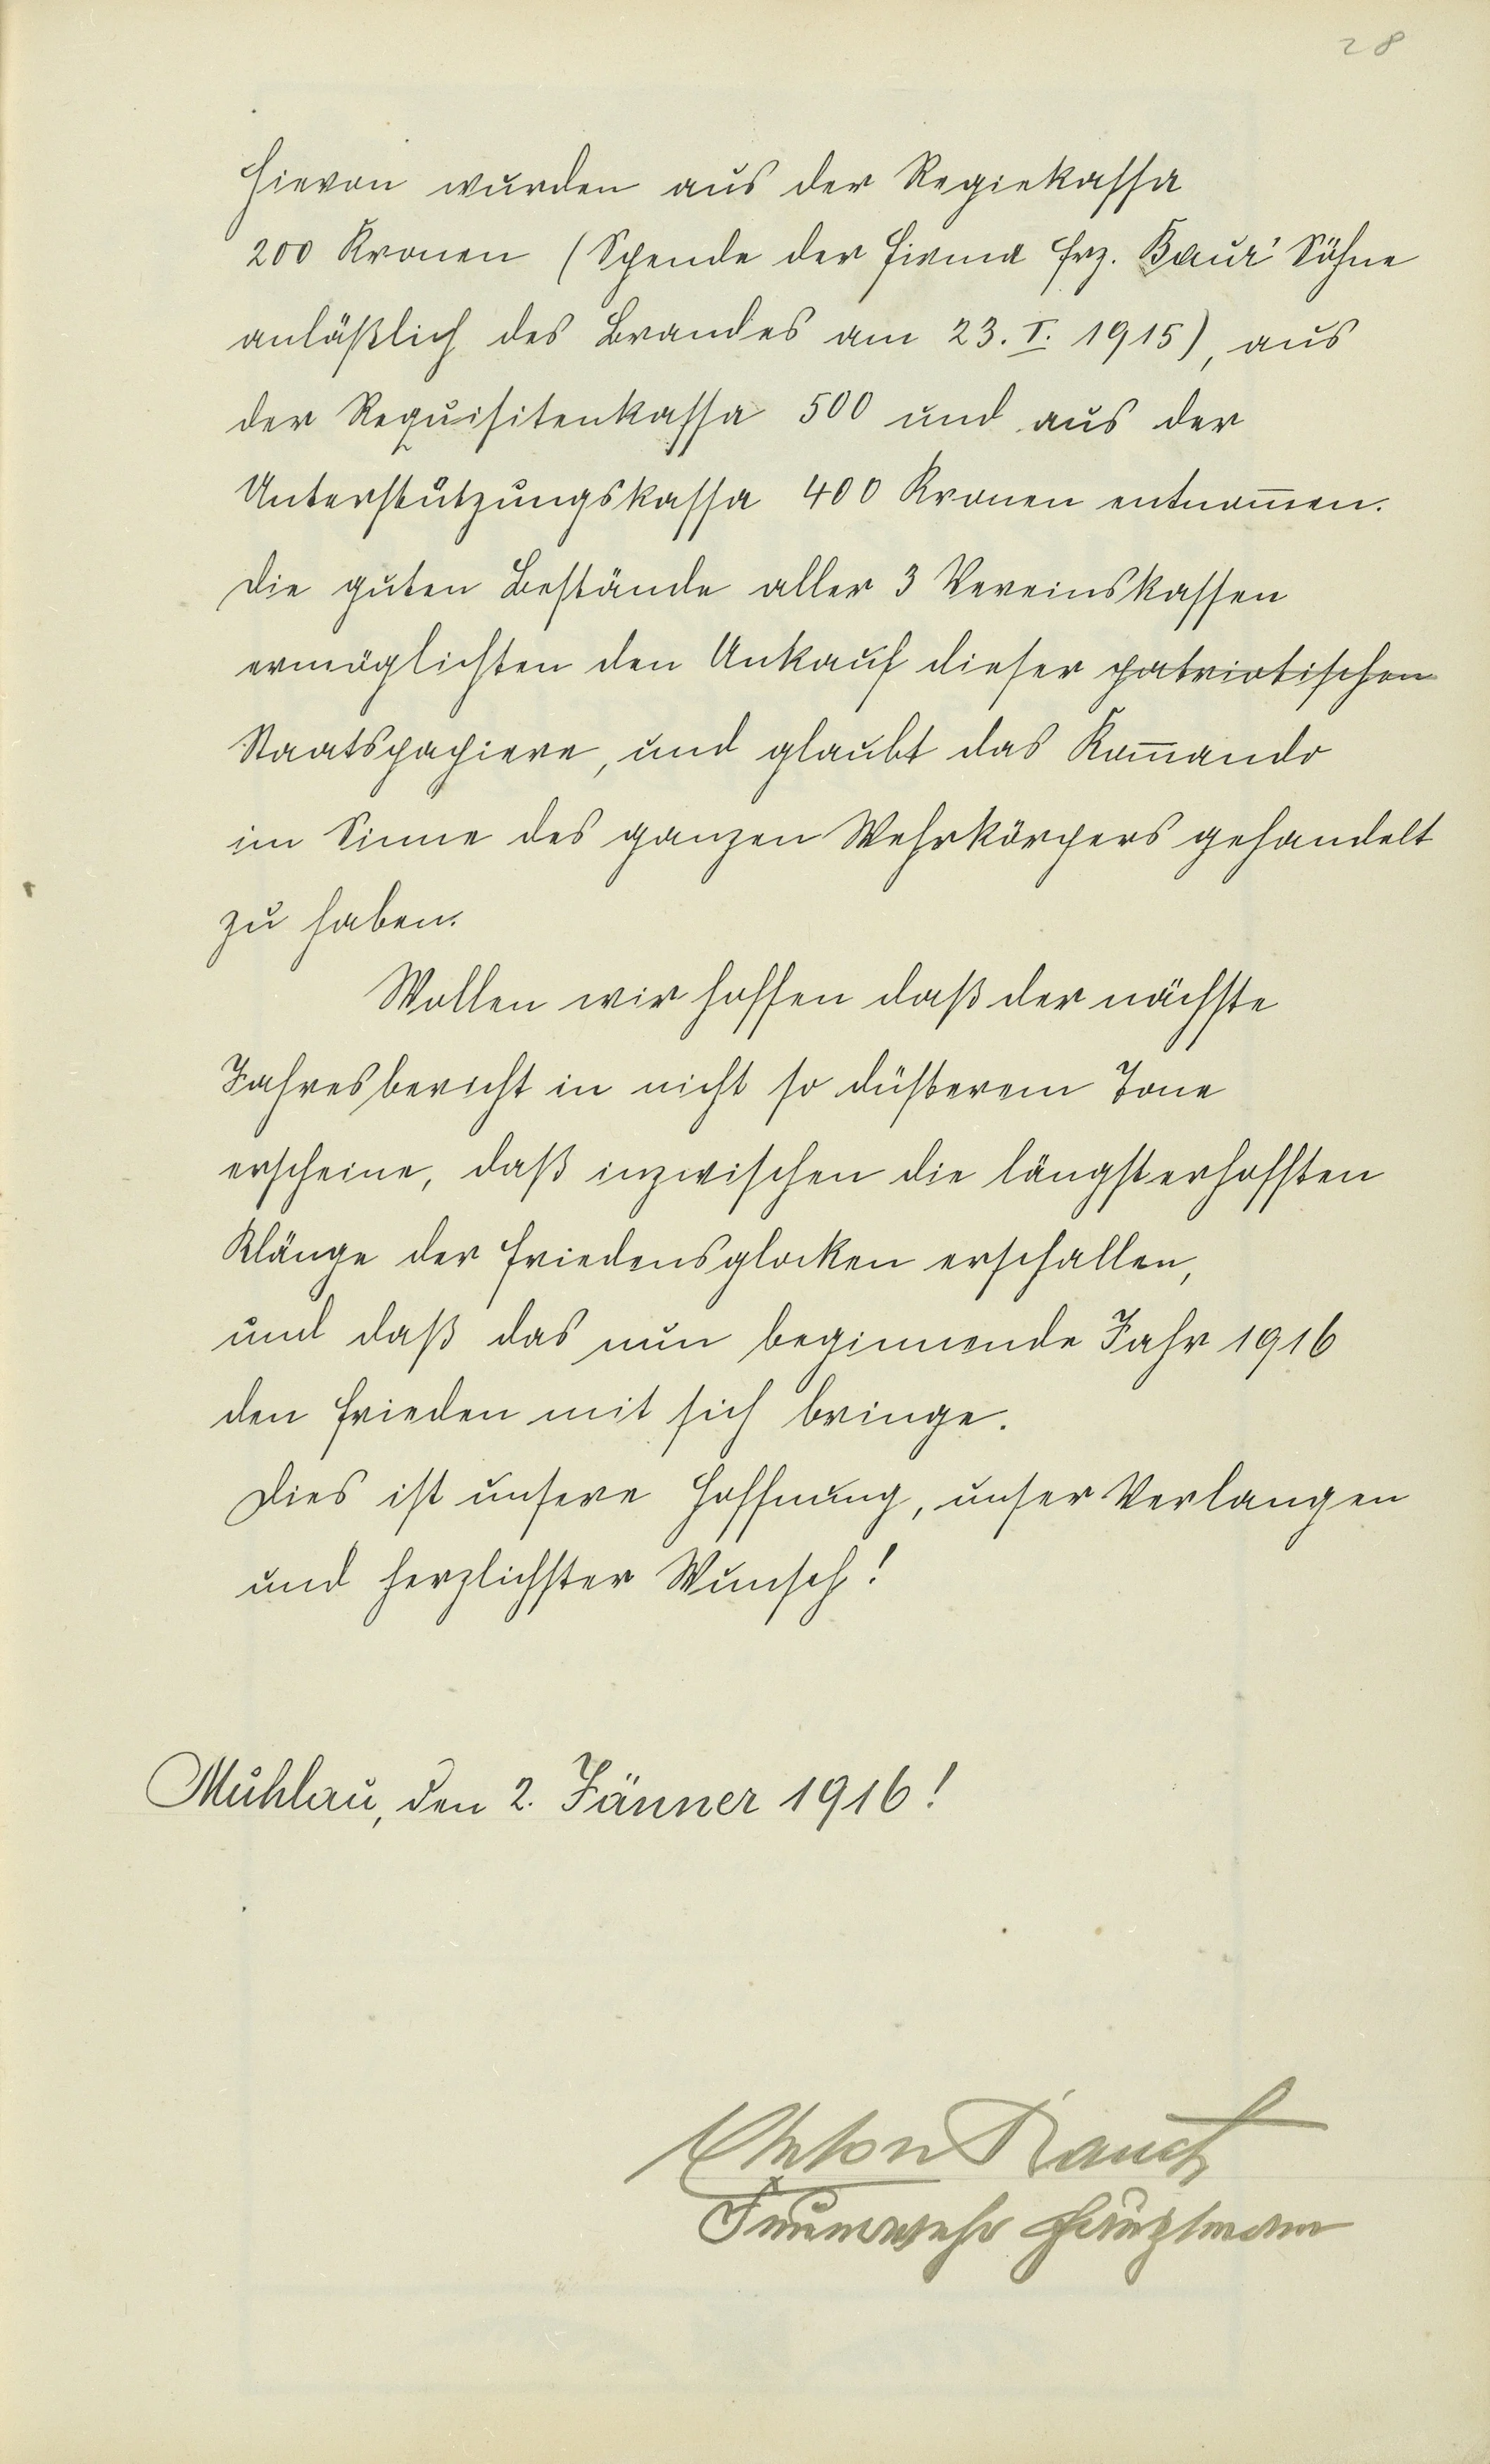 28
Hievon wurden aus der Regiekassa
200 Kronen (Spende der Firma Frz. Baur' Söhne
anläßlich des Brandes am 23. I. 1915), aus
der Requisitenkassa 500 und aus der
Unterstützungskassa 400 Kronen entnom̄en.
Die guten Bestände aller 3 Vereinskassen
ermöglichten den Ankauf dieser patriotischen
Staatspapiere, und glaubt das Kom̄ando
im Sinne des ganzen Wehrkörpers gehandelt
zu haben.
Wollen wir hoffen daß der nächste
Jahresbericht in nicht so düsterem Tone
erscheine, daß inzwischen die längsterhofften
Klänge der Friedensglocken erschallen,
und daß das nun beginnende Jahr 1916
den Frieden mit sich bringe.
Dies ist unsere Hoffnung, unser Verlangen
und herzlichster Wunsch!
Mühlau, den 2. Jänner 1916!
Anton Rauch
Feuerwehr Hauptmann